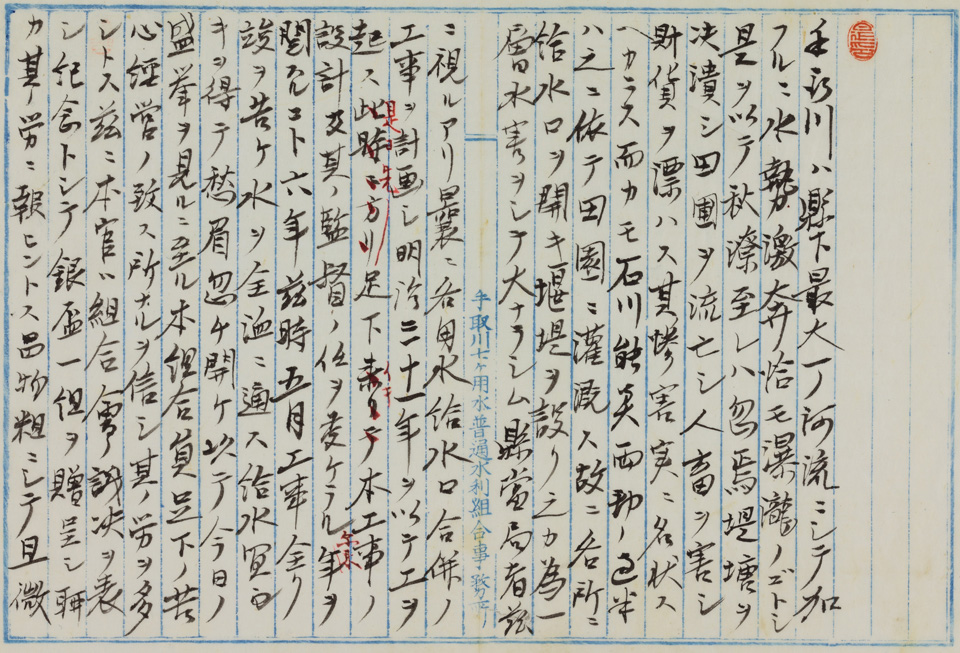 手取川ハ縣下最大一ノ河流ニシテ加
フルニ水勢激奔恰モ瀑瀧ノゴトシ
是ヲ以テ秋潦至レハ忽焉堤塘ヲ
决潰シ田圃ヲ流亡シ人畜ヲ害シ
財貨ヲ漂ハス其惨害実ニ名状ス
ヘカラス而カモ石川能美両郡ノ過半
ハ之ニ依テ田園ニ灌漑ス故ニ各所ニ
給水口ヲ開キ堰堤ヲ設リ之カ為一
層水害ヲシテ大ナラシム縣當局者茲
手取川七ヶ用水普通水利組合事務所
ニ視ルアリ曩ニ各用水給水口合併ノ
工事ヲ計画シ明治二十一年ヲ以テ工ヲ
起ス此時ニ方リ足下 本工事ノ
設計及其ノ監督ノ任ヲ委ケラル爾来年ヲ
閲スルコト六年茲時五月工事全ク
竣ヲ告ケ水ヲ全溢ニ通ス給水
キヲ得テ愁眉忽チ開ケ以テ今日ノ
盛挙ヲ見ルニ至ル本組合員足下ノ苦
心經営ノ致ス所ナルヲ信シ其ノ労ヲ多
シトス茲ニ本官ハ組合會ノ議决ヲ表
シ紀念トシテ銀盃一組ヲ贈呈シ聊
カ其ノ労ニ報ヒントス品物粗ニシテ且微